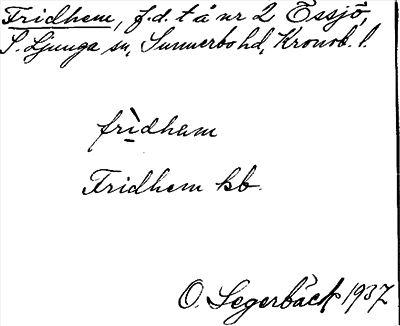 Fridhem, f.d. t å nr 2 Essjö,
S. Ljunga sn, Sunnerbo hd, Kronob. l.
frìdhem
Fridhem kb.
O. Segerbäck 1937